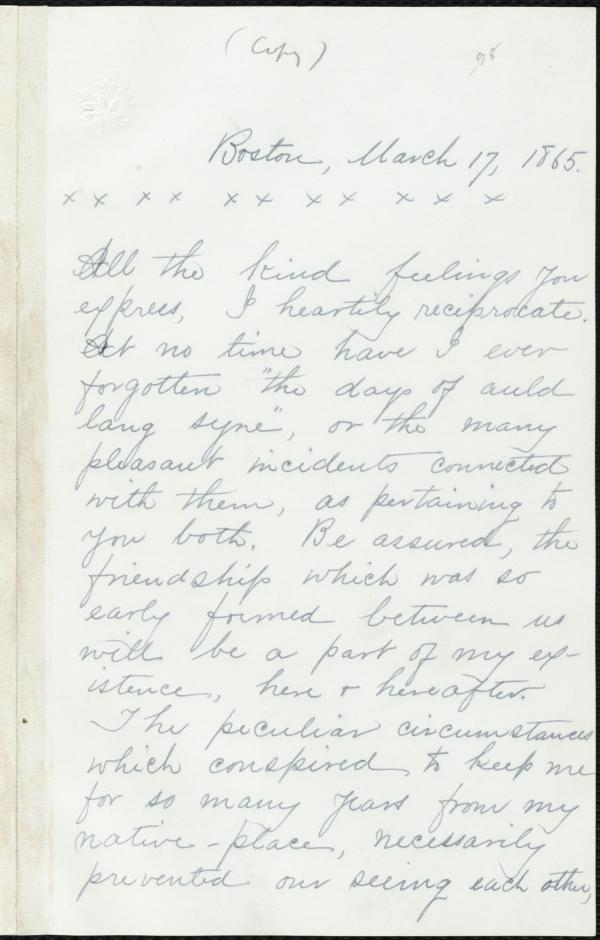 (Copy)
Boston, March 17, 1865.
x x x x x x x x x x x
All the kind feelings you
express, I heartily reciprocate.
At no time have I ever
forgotten "the days of auld
lang syne", or the many
pleasant incidents connected
with them, as pertaining to
you both. Be assured, the
friendship which was so
early formed between us
will be a part of my ex-
istence, here & hereafter.
The peculiar circumstances
which conspired to keep me
for so many years from my
native-place, necessarily
prevented our seeing each other,